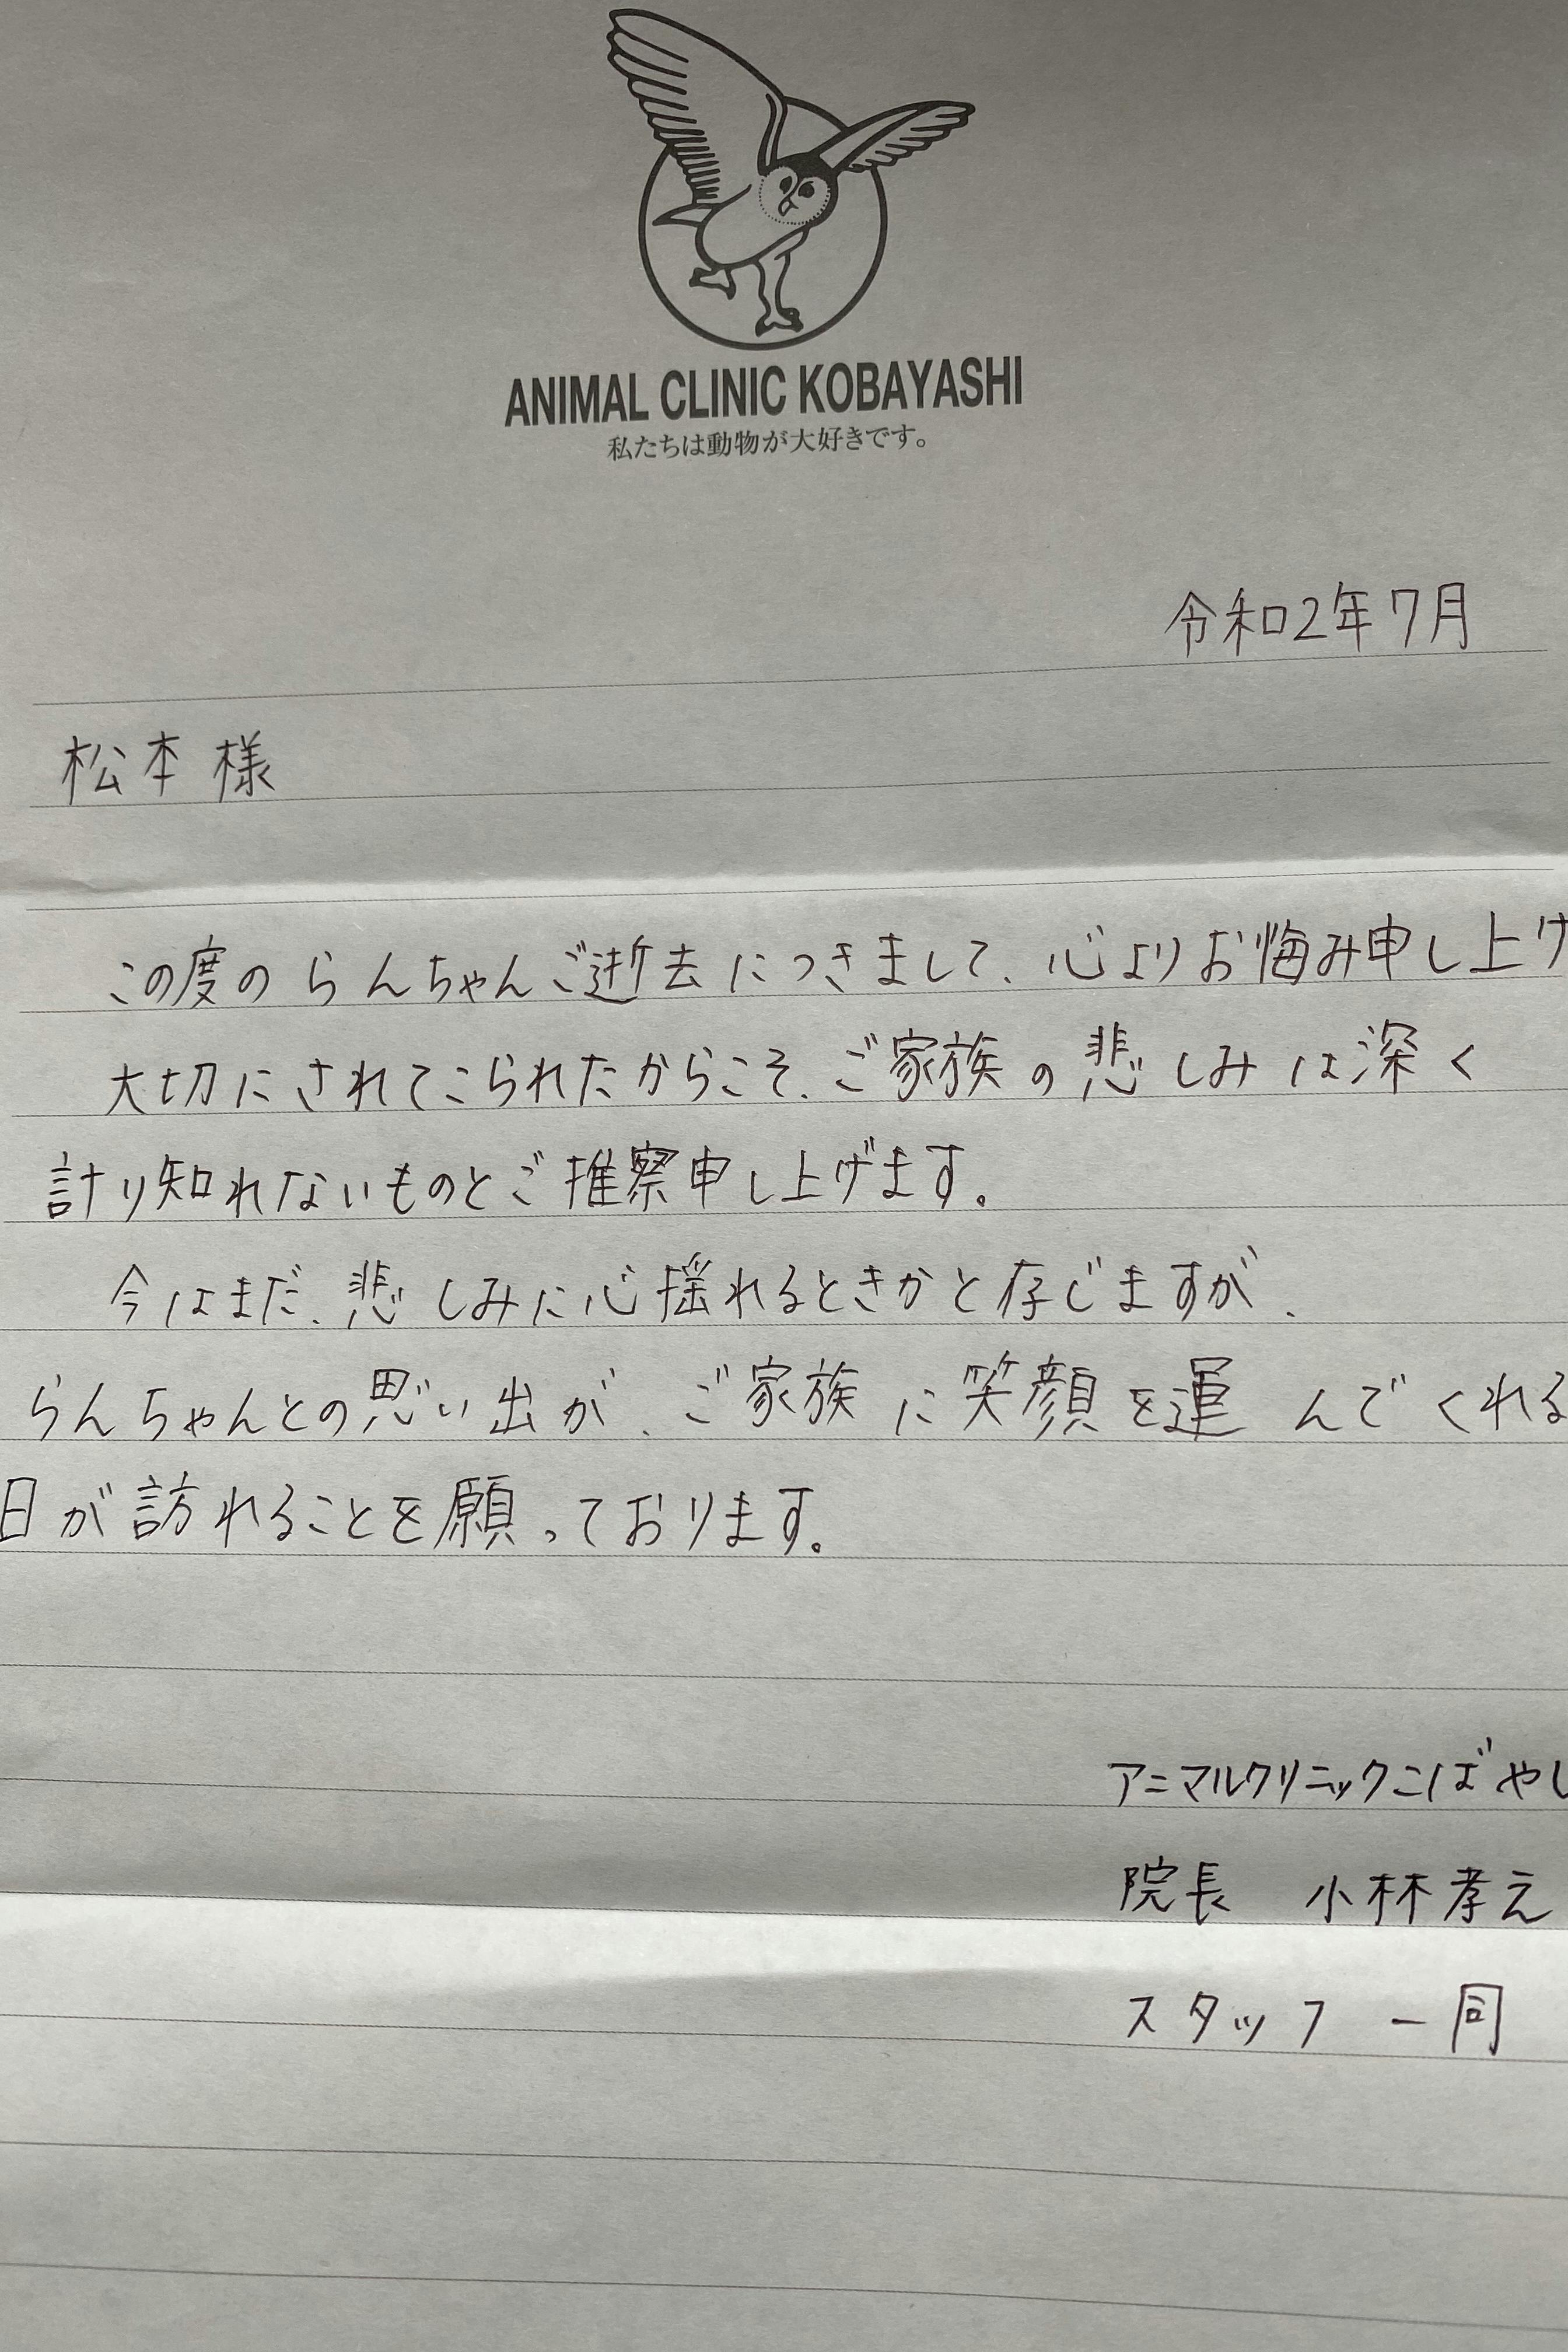 ANIMAL CLINIC KOBAYASHI
私たちは動物が大好きです。
令和2年7月
松本 様
この度の らんちゃんご逝去につきまして、心よりお悔み申し上げ
大切にされてこられたからこそ、ご家族の悲しみは深く
計り知れないものとご推察申し上げます。
今はまだ、悲しみに心揺れるときかと存じますが、
らんちゃんとの思い出が、ご家族に笑顔を運んでくれる
日が訪れることを願っております。
アニマルクリニックこばやし
院長 小林孝之
スタッフ 一同